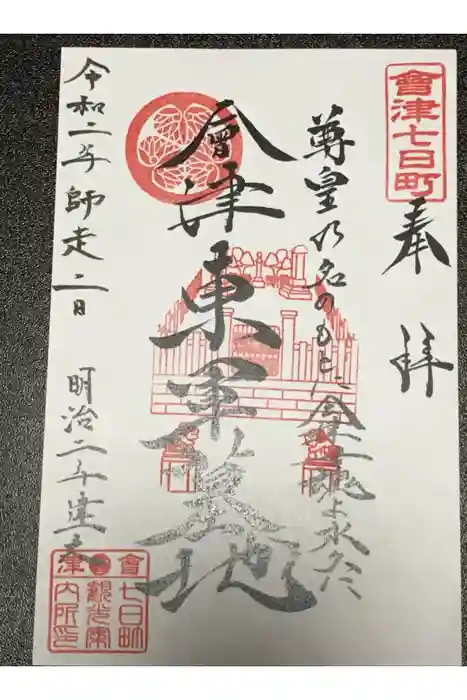 會津七日町
奉拝
尊皇の名のもとに会津魂よ永久に
會津東軍墓地
令和二年師走二日
明治二年建立
會七日町
観光案
津内所印